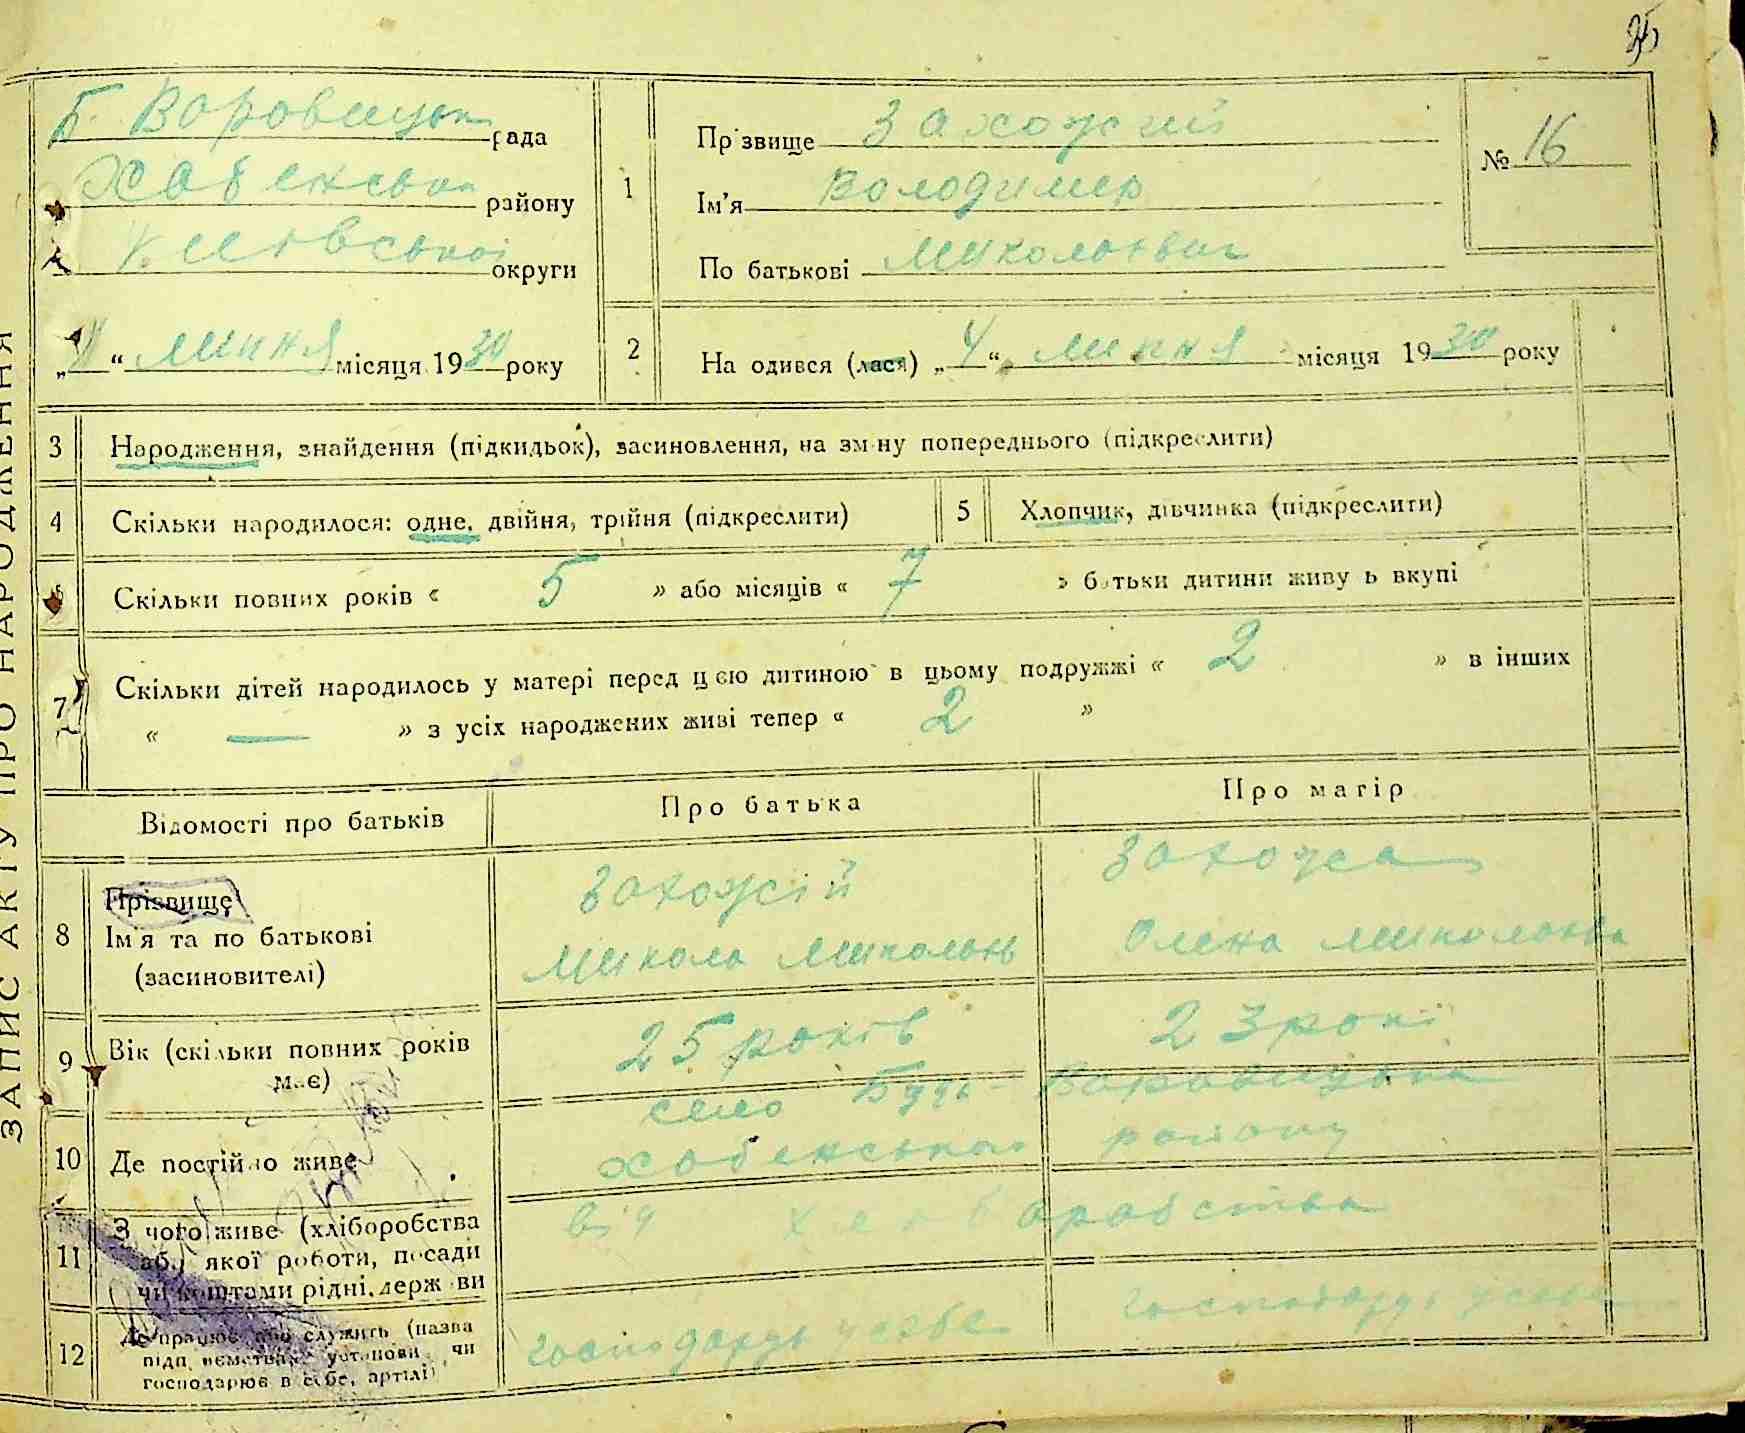 35
ЗАПИС АКТУ ПРО НАРОДЖЕННЯ
Б. Воровицька рада
Хабенська району
Київської округи
„4“ липня місяця 1930 року
1
Прізвище Захожий
Ім'я Володимер
По батькові Миколович
№ 16
2
Народився (лася) „4“ липня місяця 1930 року
3 Народження, знайдення (підкидьок), засиновлення, на зміну попереднього (підкреслити)
4 Скільки народилося: одне, двійня, трійня (підкреслити)
5 Хлопчик, дівчинка (підкреслити)
6 Скільки повних років « 5 » або місяців « 7 » батьки дитини живуть вкупі
7 Скільки дітей народилось у матері перед цією дитиною в цьому подружжі « 2 » в інших
« — » з усіх народжених живі тепер « 2 »
Відомості про батьків Про батька Про матір
8 Прізвище
Ім'я та по батькові
(засиновителі)
Захожій
Микола Миколовь
Захожа
Олена Миколовна
9 Вік (скільки повних років
має)
25 років
23 роки
10 Де постійно живе
село Буда-Воровицька
Хабенського району
11 З чого живе (хліборобства
або якої роботи, посади
чи коштами рідні, держави
від хлеборобства
12 Де працює або служить (назва
підприємства, установи, чи
господарює в себе, артілі)
господарує у себе
господарує у себе